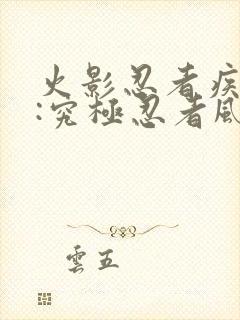 火影忍者疾
:究極忍者風
雲五